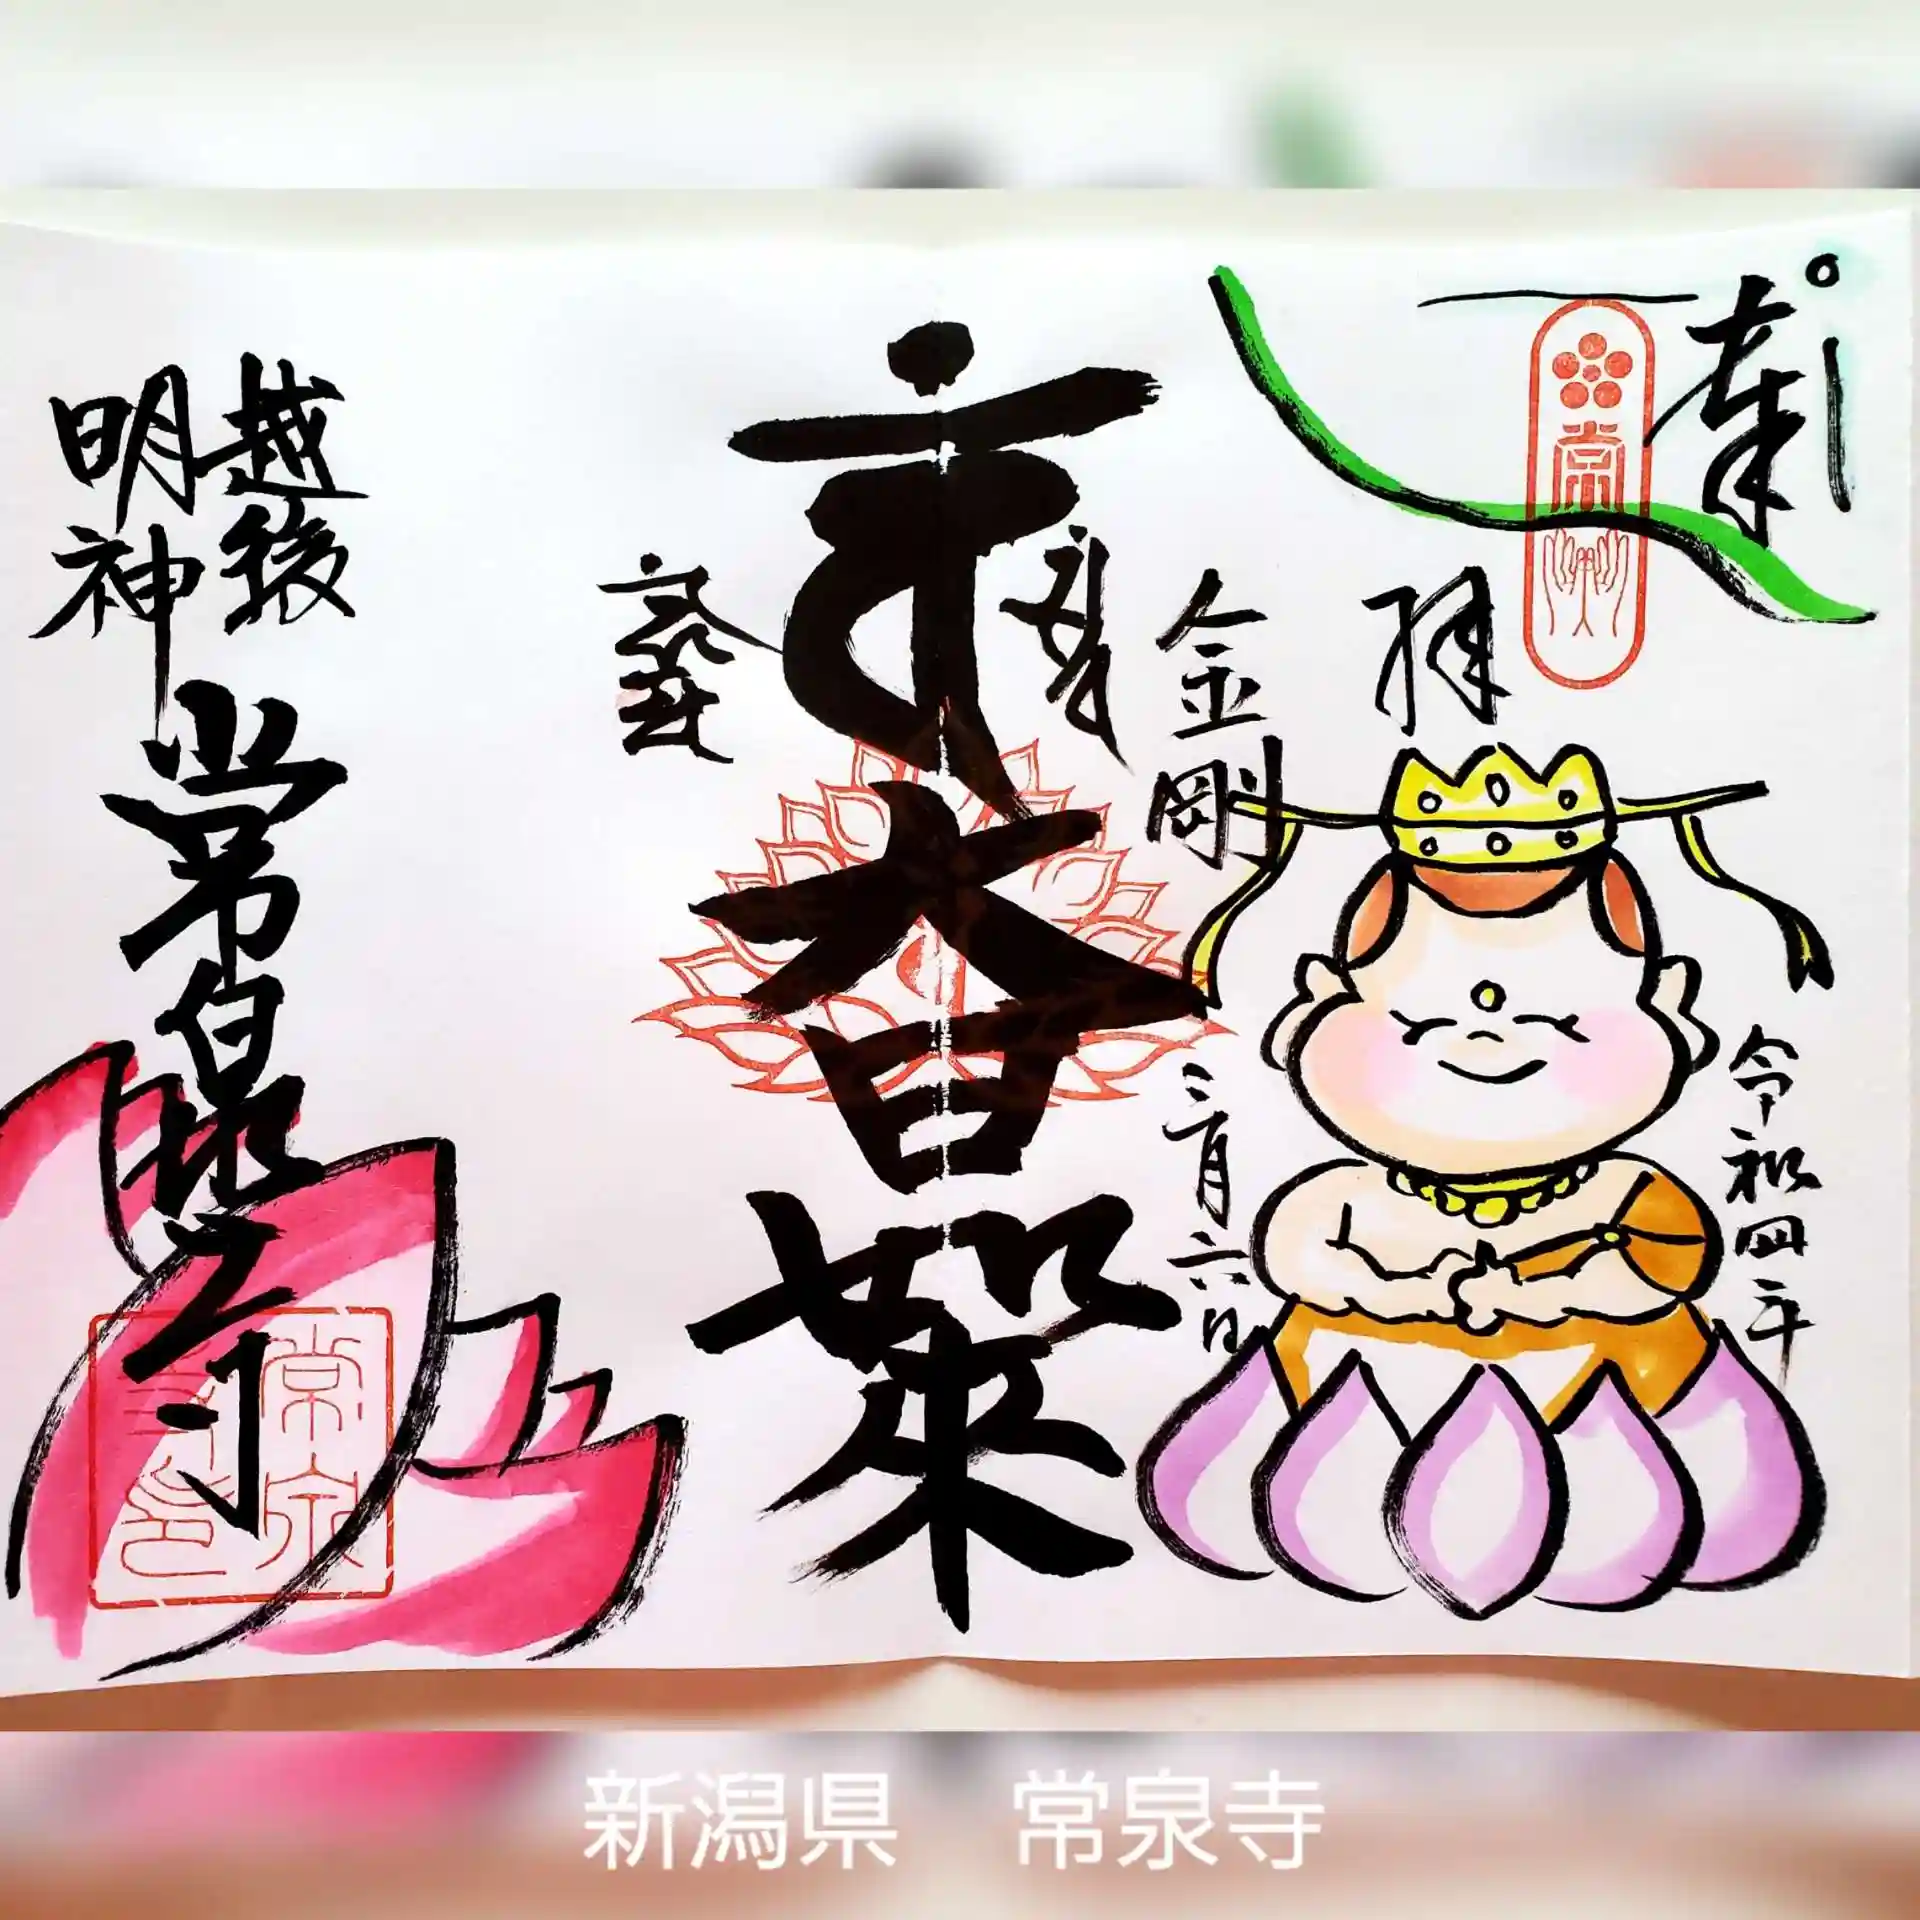 奉
拝
常
金剛
令和四年
三月六日
大日如来
越後
明神
常泉寺
常泉
新潟県　常泉寺